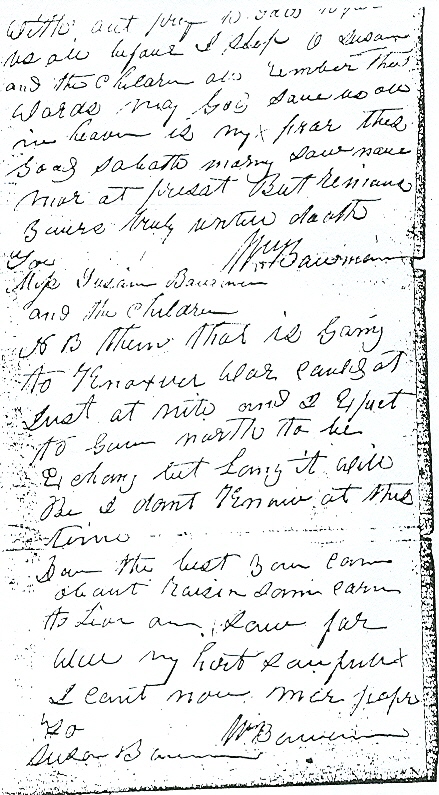 With out prey to save
us all before I sleep O Susan
and the Children all rember thes
Words may God save us all
in heaven is my prar this
Good Sabath marny Saw nare
mor at presat But remians
yours truly untill death
Wm Bauman
Too
Miss Susan Bauman
and the Children
N B them that is Going
to Knoxver War caulg at
Dust at nite and I Expect
to Gow north to be
Exchang but Long it will
Be I dont Know at this
time
Dow the best you can
about Raisin Som carn
to Live on, saw far
Will my hart
I cant now mor papr
to Wm Bauman
Susan Bauman